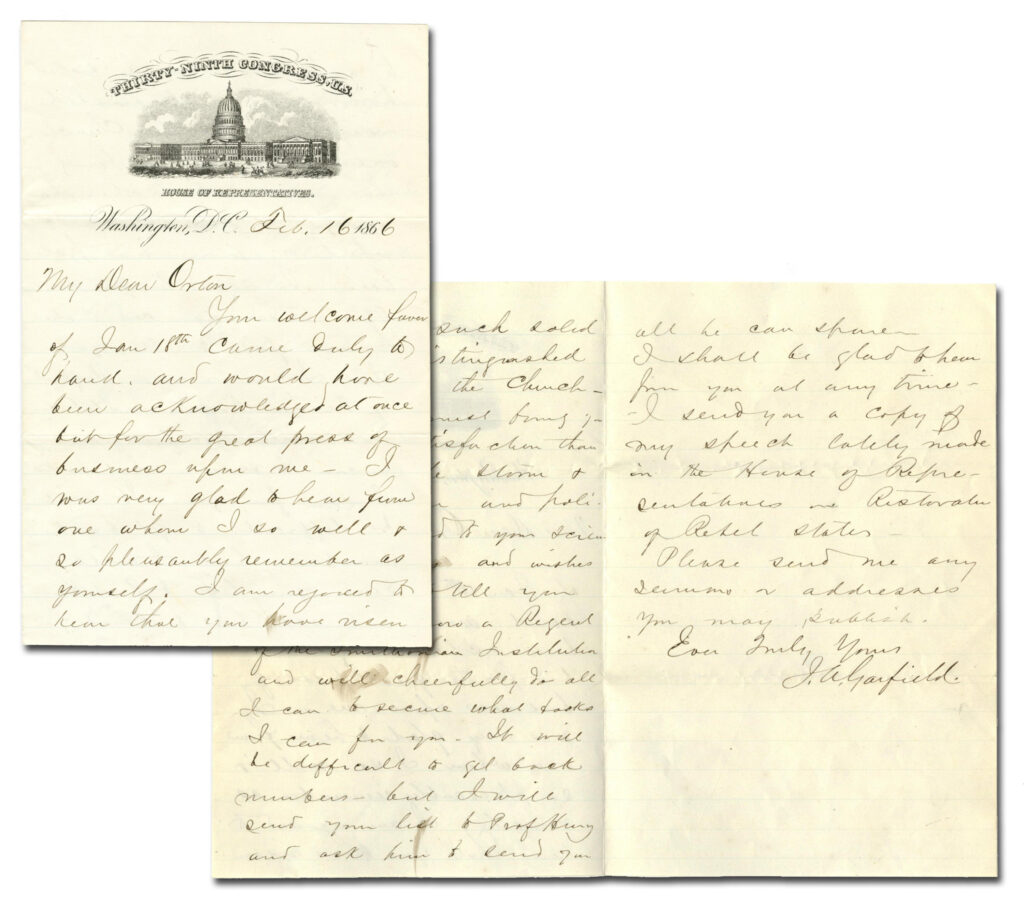 THIRTY-NINTH CONGRESS, U.S.
HOUSE OF REPRESENTATIVES.
Washington, D.C. Feb. 16 1866
My Dear Orton
Your welcome favor
of Jan 18th came duly to
hand. and would have
been acknowledged at once
but for the great press of
business upon me – I
was very glad to hear from
one whom I so well &
so pleasantly remember as
yourself. I am rejoiced to
hear that you have risen
such solid
istinguished
the Church –
must bring
isfaction than
storm &
and poli-
to your scien
and wishes
tell you
a Regent
of the Smithsonian Institution
and will cheerfully do all
I can to secure what books
I can for you – It will
be difficult to get back
numbers – but I will
send your list to Prof Henry
and ask him to send you
all he can spare –
I shall be glad to hear
from you at any time –
– I send you a copy of
my speech lately made
in the House of Repre-
sentatives on Restoration
of Rebel States –
Please send me any
sermons or addresses
you may publish.
Ever Truly Yours
J. A. Garfield.